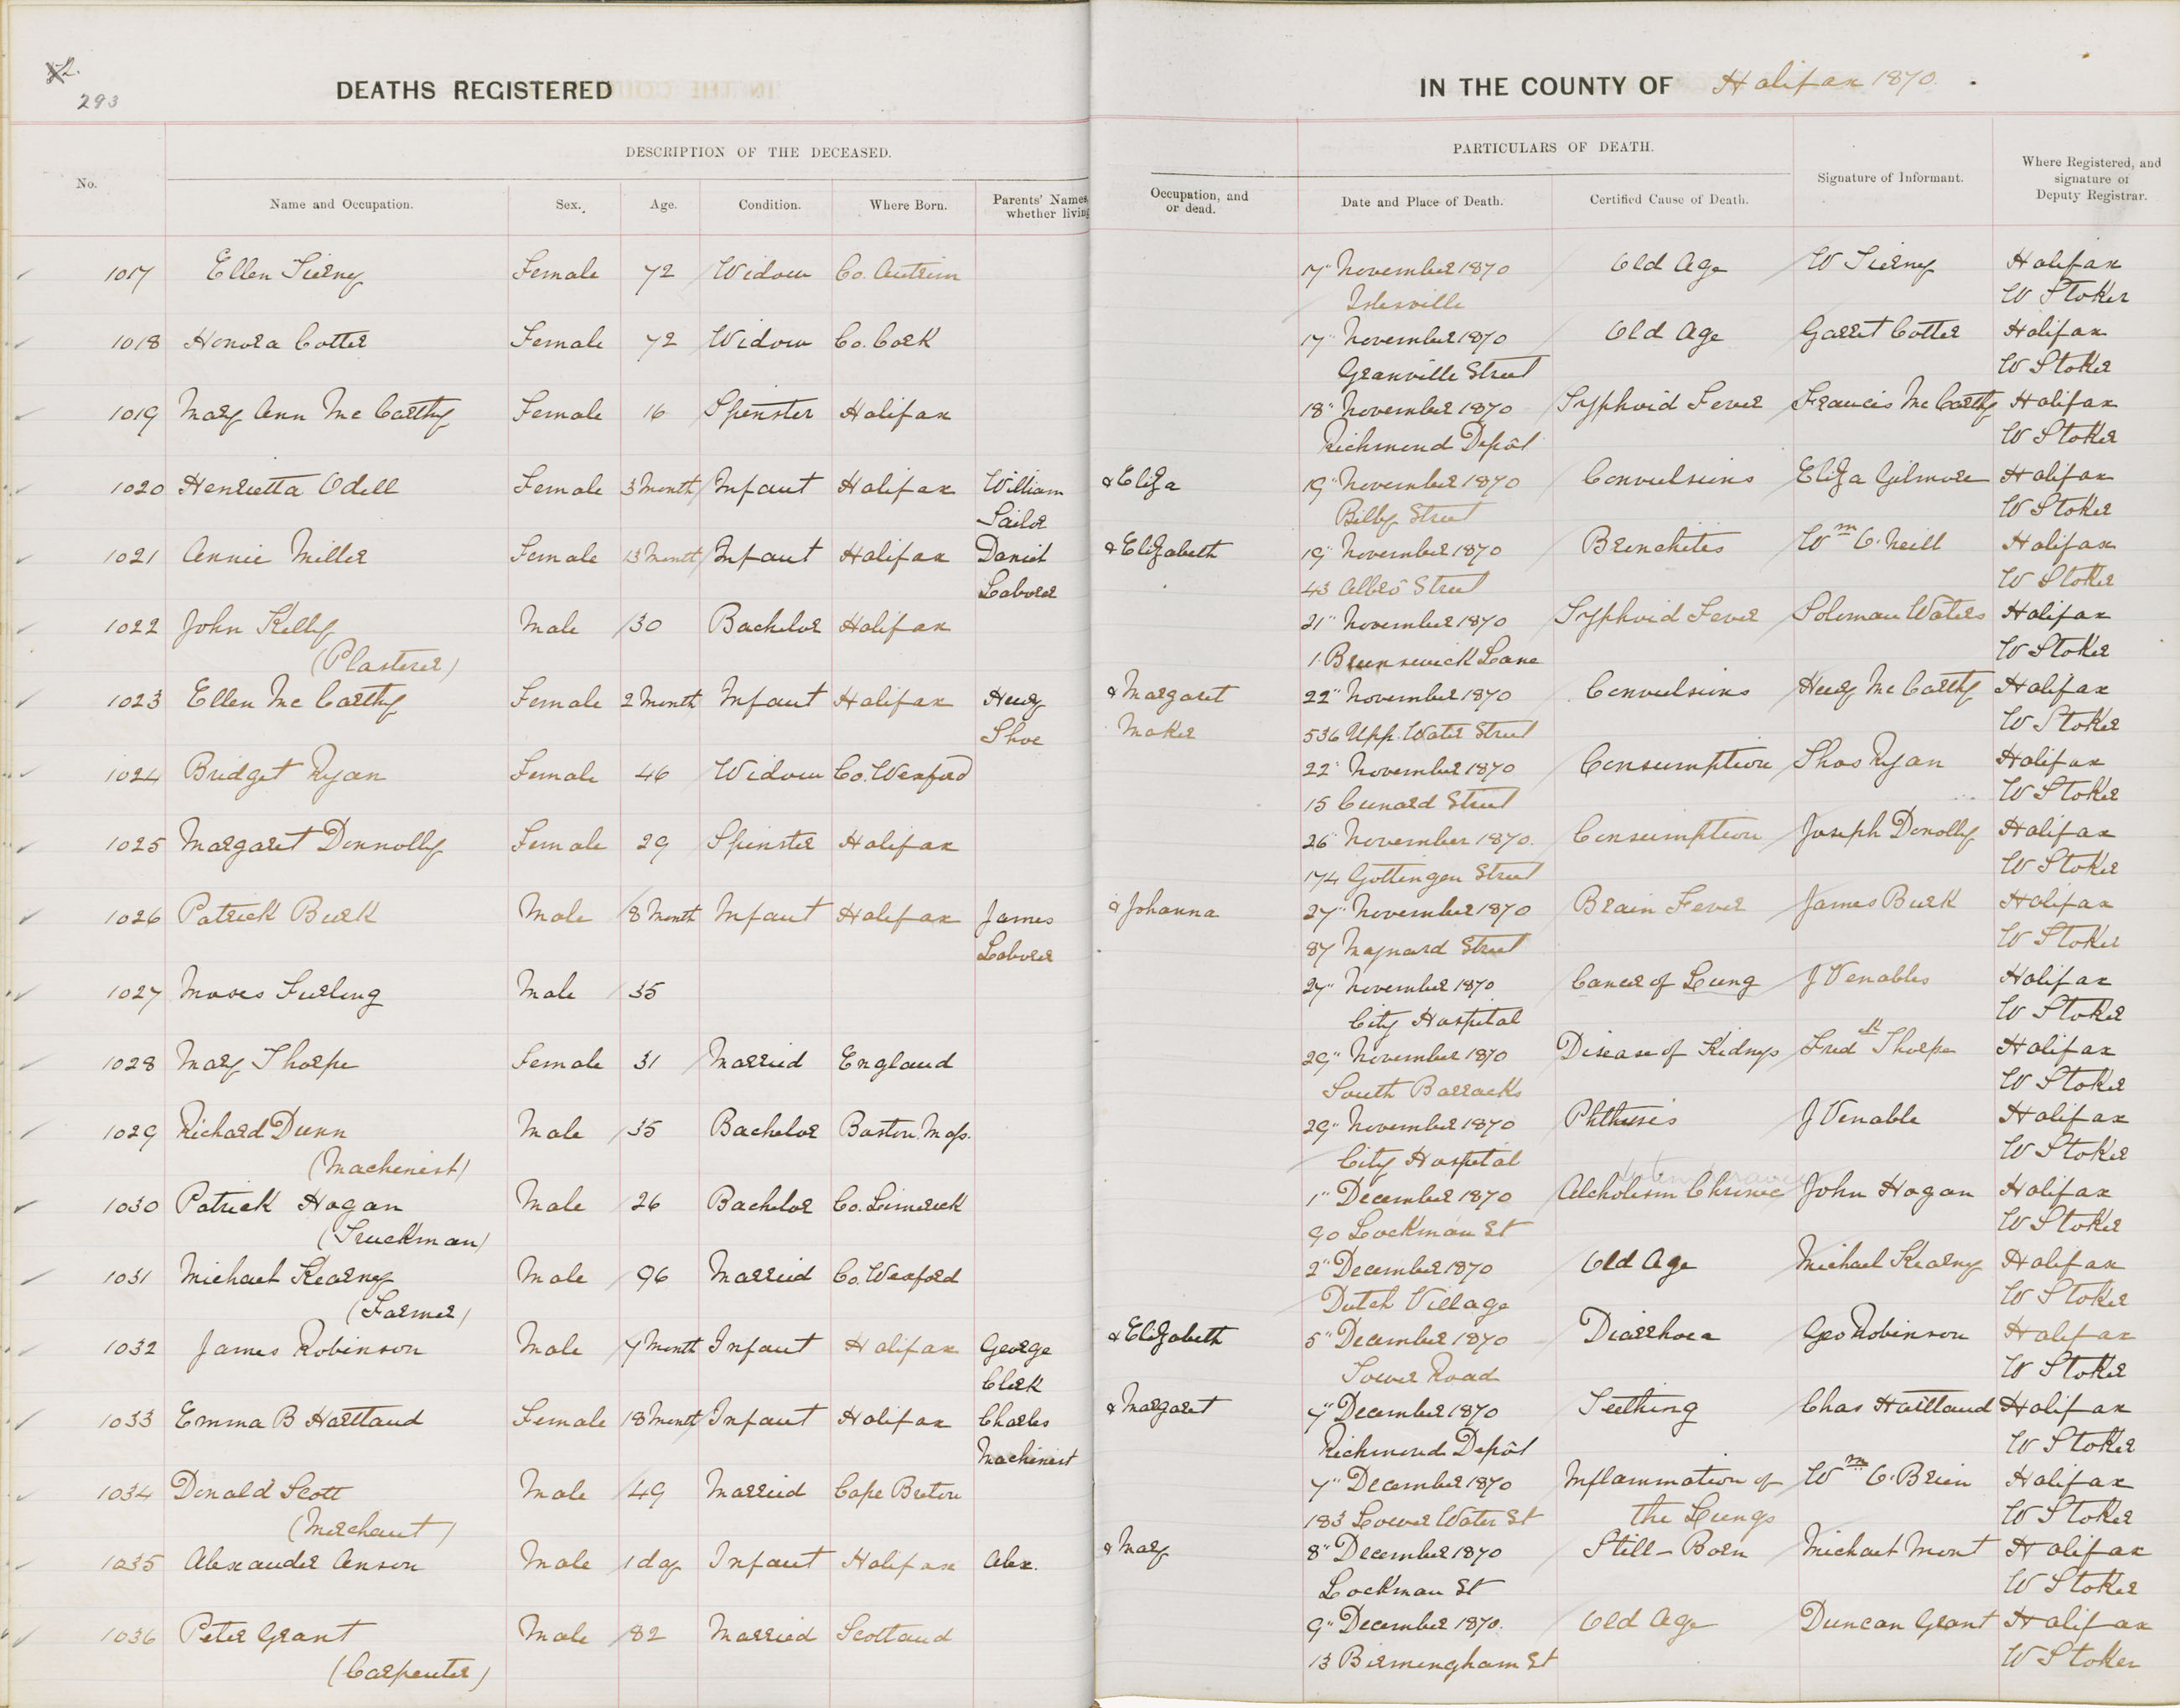 293
DEATHS REGISTERED IN THE COUNTY OF Halifax 1870.
DESCRIPTION OF THE DECEASED. PARTICULARS OF DEATH.
No. Name and Occupation. Sex. Age. Condition. Where Born. Parents' Names, whether living Occupation, and or dead. Date and Place of Death. Certified Cause of Death. Signature of Informant. Where Registered, and signature of Deputy Registrar.
1017 Ellen Tierney Female 72 Widow Co. Antrim 17" November 1870 Old Age W Tierney Halifax
Islesville W Stoker
1018 Honora Cotter Female 72 Widow Co. Cork 17" November 1870 Old Age Garret Cotter Halifax
Granville Street W Stoker
1019 Mary Ann Mc Carthy Female 16 Spinster Halifax 18" November 1870 Typhoid Fever Francis Mc Carthy Halifax
Richmond Depôt W Stoker
1020 Henrietta Odell Female 3 Month Infant Halifax William & Eliza 19" November 1870 Convulsions Eliza Gilmore Halifax
Sailor Bilby Street W Stoker
1021 Annie Miller Female 13 Month Infant Halifax Daniel & Elizabeth 19" November 1870 Bronchites Wm O'Neill Halifax
Laborer 43 Albro Street W Stoker
1022 John Kelly Male 30 Bachelor Halifax 21" November 1870 Typhoid Fever Soloman Waters Halifax
(Plasterer) 1 Brunswick Lane W Stoker
1023 Ellen Mc Carthy Female 2 Month Infant Halifax Henry & Margaret 22" November 1870 Convulsions Henry Mc Carthy Halifax
Shoe Maker 536 Upp. Water Street W Stoker
1024 Bridget Ryan Female 46 Widow Co. Wexford 22" November 1870 Consumption Thos Ryan Halifax
15 Cunard Street W Stoker
1025 Margaret Donnolly Female 29 Spinster Halifax 26" November 1870. Consumption Joseph Donolly Halifax
174 Gottingen Street W Stoker
1026 Patrick Burk Male 8 Month Infant Halifax James & Johanna 27" November 1870 Brain Fever James Burk Halifax
Laborer 87 Maynard Street W Stoker
1027 Moses Furlong Male 35 27" November 1870 Cancer of Lung J Venables Halifax
City Hospital W Stoker
1028 Mary Thorpe Female 31 Married England 29" November 1870 Disease of Kidnys Fredk Thorpe Halifax
South Barracks W Stoker
1029 Richard Dunn Male 35 Bachelor Boston Mass. 29" November 1870 Phthisis J Venable Halifax
(Machinist) City Hospital W Stoker
1030 Patrick Hogan Male 26 Bachelor Co. Limerick 1" December 1870 Alcholism Chronic John Hogan Halifax
(Truckman) 90 Lockman St W Stoker
1031 Michael Kearney Male 96 Married Co. Wexford 2" December 1870 Old Age Michael Kearny Halifax
(Farmer) Dutch Village W Stoker
1032 James Robinson Male 7 Month Infant Halifax George & Elizabeth 5" December 1870 Diarrhoea Geo Robinson Halifax
Clerk Tower Road W Stoker
1033 Emma B Hartland Female 18 Month Infant Halifax Charles & Margaret 7" December 1870 Teething Chas Hartland Halifax
Machinist Richmond Depôt W Stoker
1034 Donald Scott Male 49 Married Cape Breton 7" December 1870 Inflammation of Wm O'Brien Halifax
(Merchant) 183 Lower Water St the Lungs W Stoker
1035 Alexander Anson Male 1 day Infant Halifax Alex. & Mary 8" December 1870 Still-Born Michael Mont Halifax
Lockman St W Stoker
1036 Peter Grant Male 82 Married Scotland 9" December 1870. Old Age Duncan Grant Halifax
(Carpenter) 13 Birmingham St W Stoker